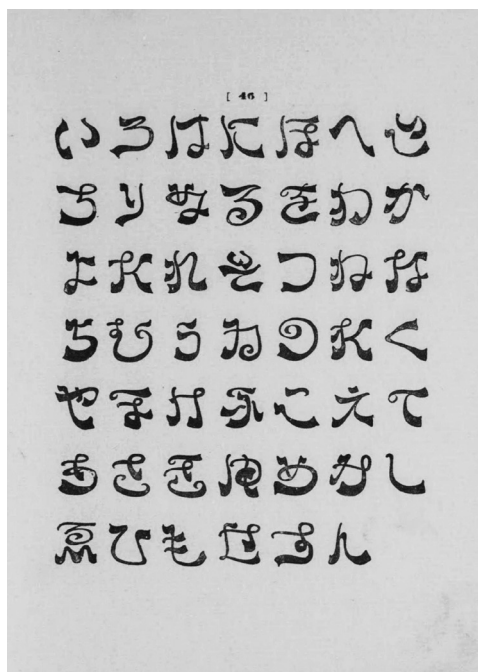 [ 46 ]
いろはにほへと
ちりぬるをわか
よたれそつねな
らむうゐのおく
やまけふこえて
あさきゆめみし
ゑひもせすん